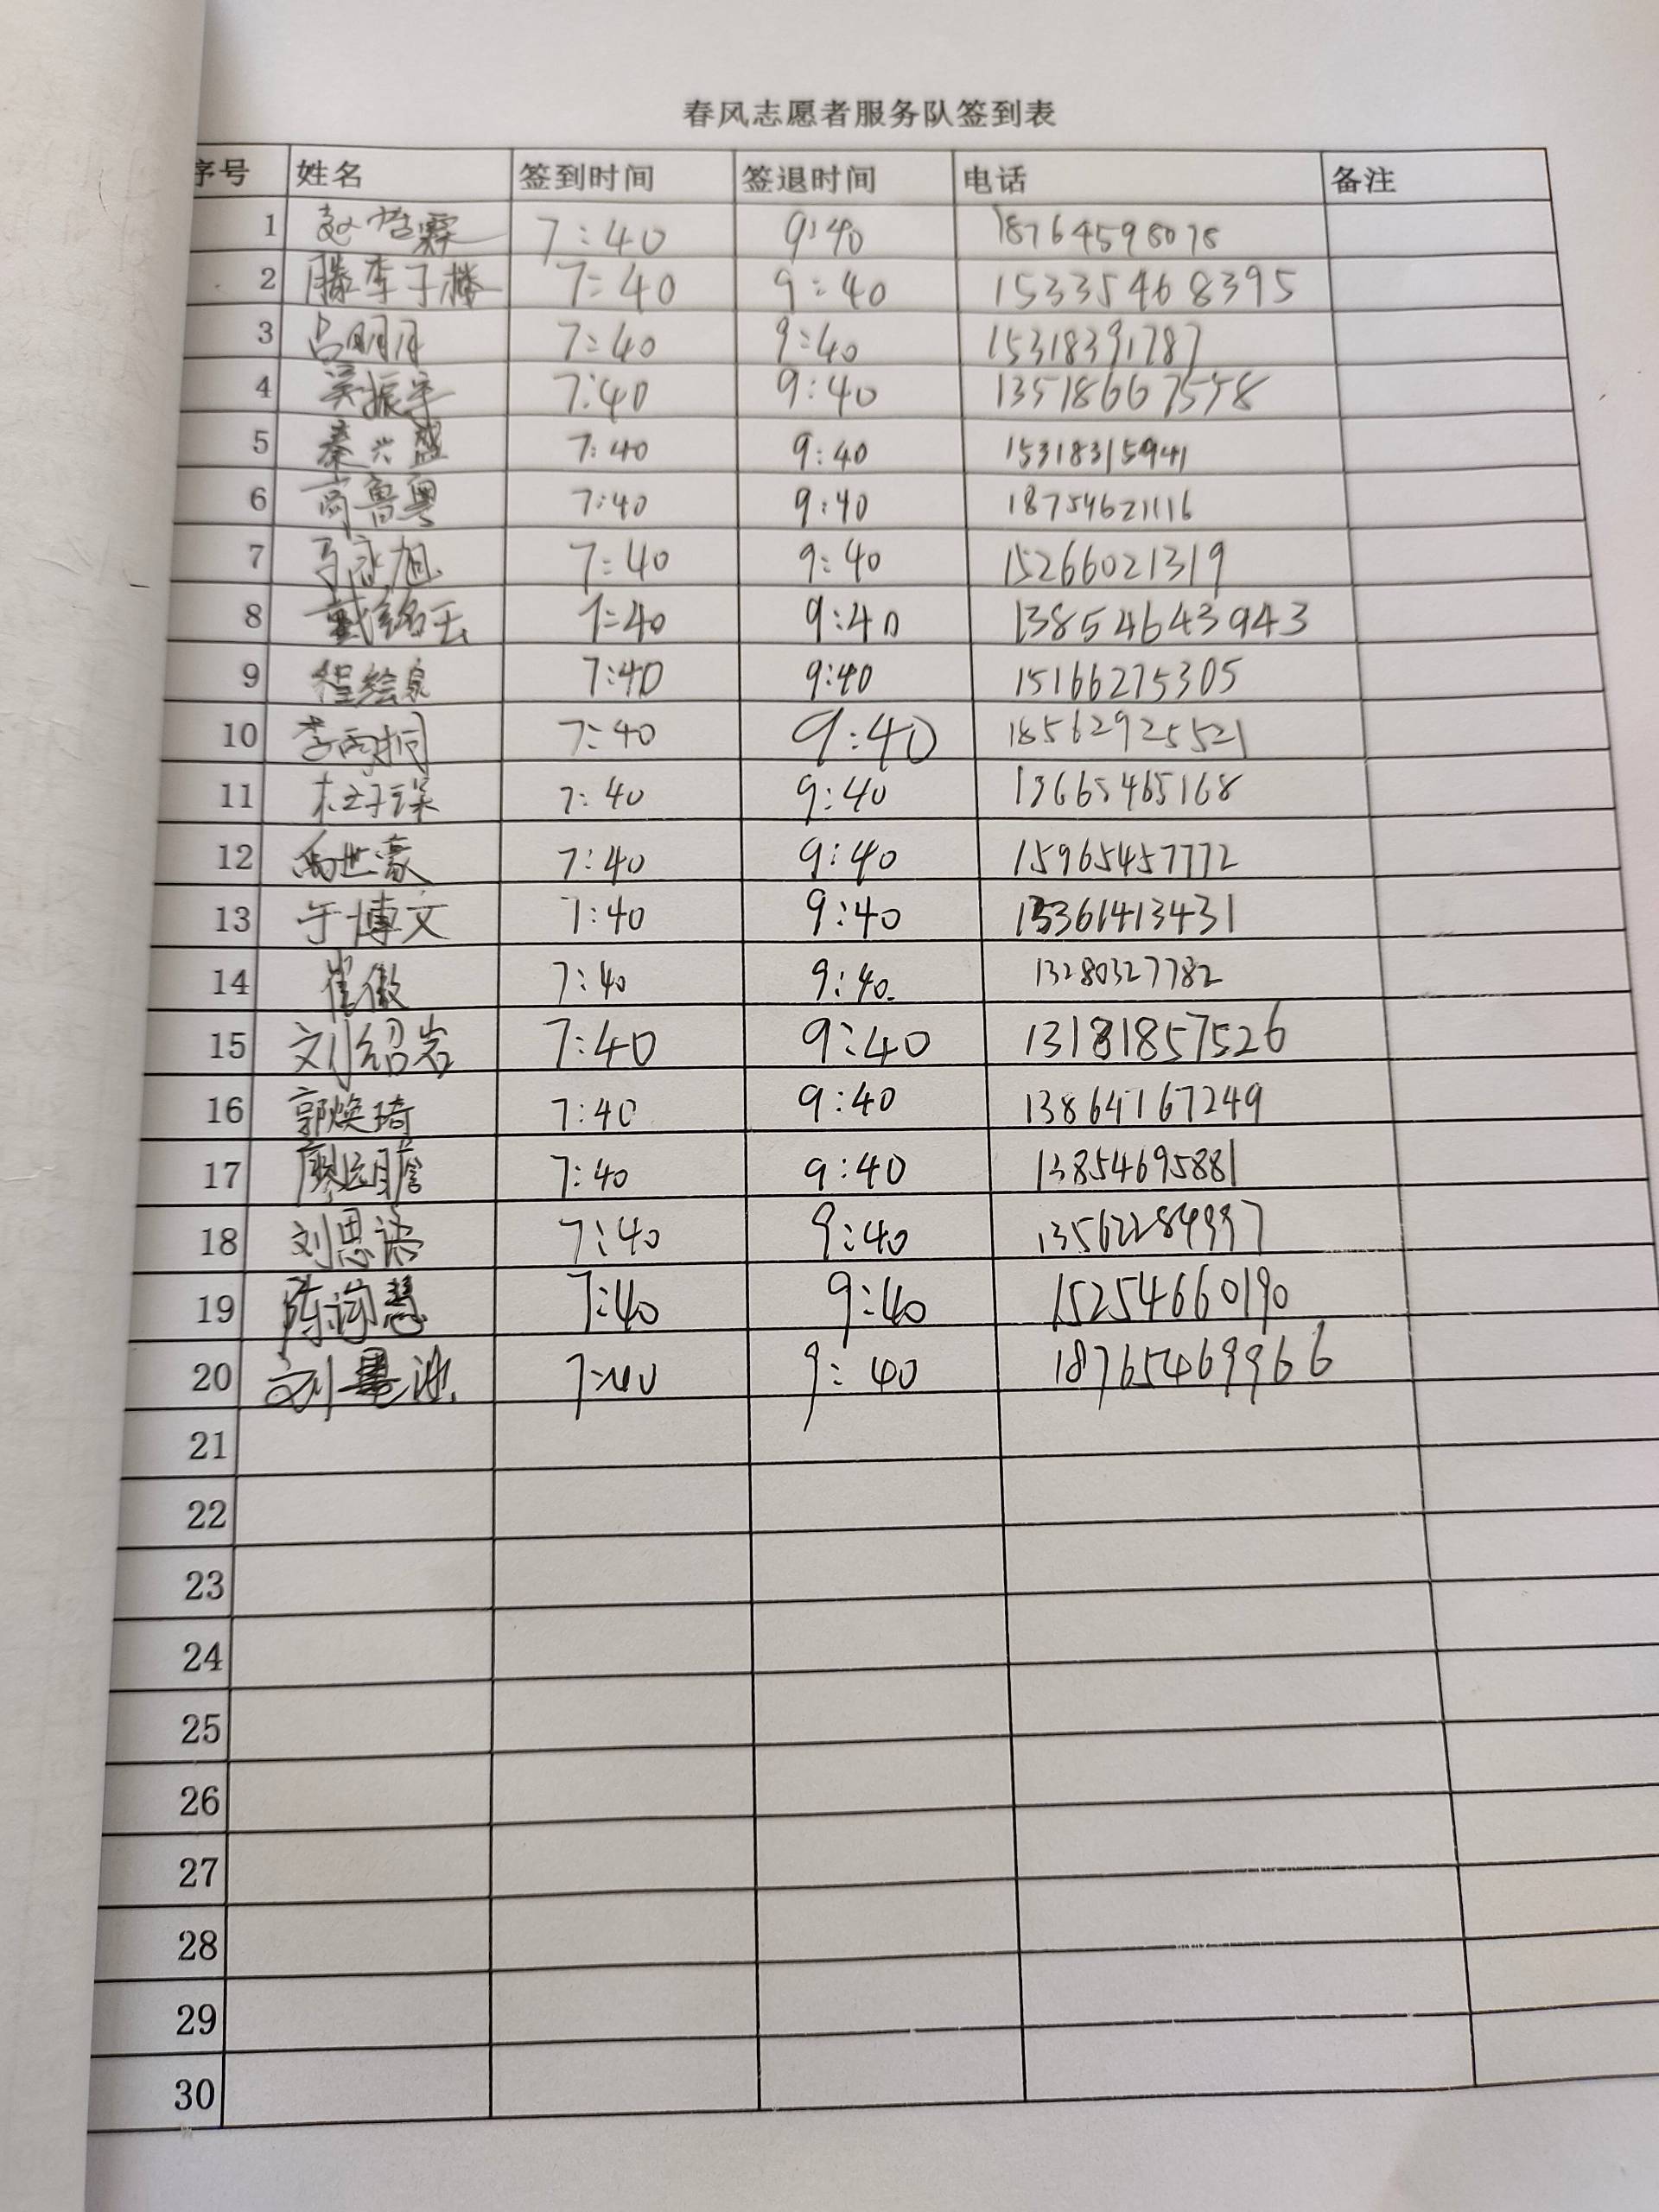 春风志愿者服务队签到表
序号 姓名 签到时间 签退时间 电话 备注
1 7:40 9:40 18764598078
2 滕李子腾 7:40 9:40 15335468395
3 吕明月 7:40 9:40 15318391787
4 吴振宇 7:40 9:40 13518667558
5 秦兴盛 7:40 9:40 15318315941
6 商鲁粤 7:40 9:40 18754621116
7 马永旭 7:40 9:40 15266021319
8 戴铭玉 7:40 9:40 13854643943
9 程绘泉 7:40 9:40 15166275305
10 李雨桐 7:40 9:40 18562925521
11 杜子琛 7:40 9:40 13665465168
12 尚世豪 7:40 9:40 15965457772
13 于博文 7:40 9:40 15361413431
14 崔傲 7:40 9:40 13280327782
15 刘绍岩 7:40 9:40 13181857526
16 郭焕琦 7:40 9:40 13864767249
17 廖远瞻 7:40 9:40 13854695881
18 刘思语 7:40 9:40 13562284997
19 陈询慧 7:40 9:40 15254660190
20 7:40 9:40 18765469966
21
22
23
24
25
26
27
28
29
30